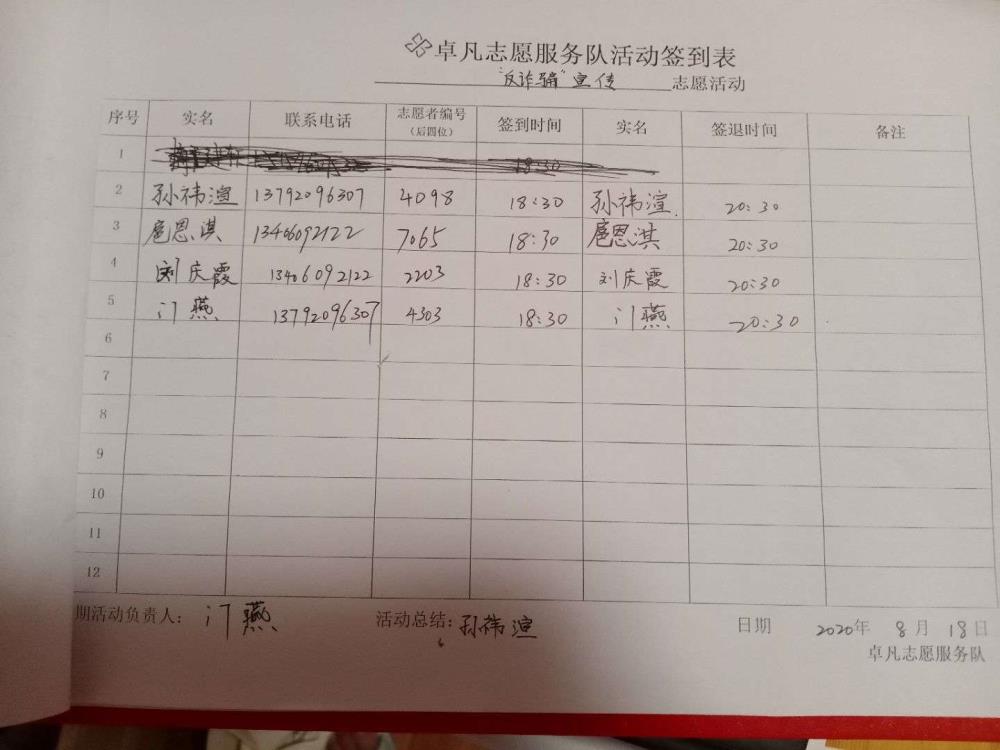 卓凡志愿服务队活动签到表
"反诈骗"宣传 志愿活动
序号 实名 联系电话 志愿者编号（后四位） 签到时间 实名 签退时间 备注
1 18:30
2 孙祎渲 13792096307 4098 18:30 孙祎渲 20:30
3 扈恩淇 13406092122 7065 18:30 扈恩淇 20:30
4 刘庆霞 13406092122 2203 18:30 刘庆霞 20:30
5 门燕 13792096307 4303 18:30 门燕 20:30
6
7
8
9
10
11
12
期活动负责人： 门燕 活动总结: 孙祎渲 日期 2020年 8月 18日
卓凡志愿服务队